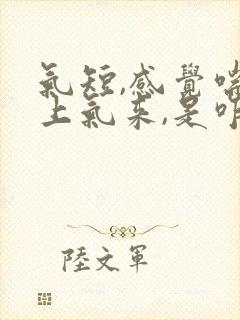 氣短,感覺喘
上氣來,是咋
陸文軍